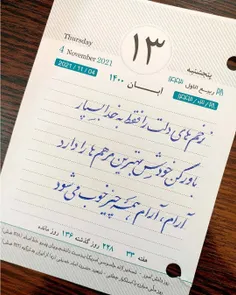 Thursday
4 November 2021
2021 / 11 / 04
۱۳
پنجشنبه
آبان ۱۴۰۰
زخم های دلت را فقط به خدا بسپار
باور کن خودش بهترین مرهم ها را دارد
آرام، آرام همه چیز خوب می شود
هفته ۳۳ ۲۲۸ روز گذشته ۱۳۶ روز مانده